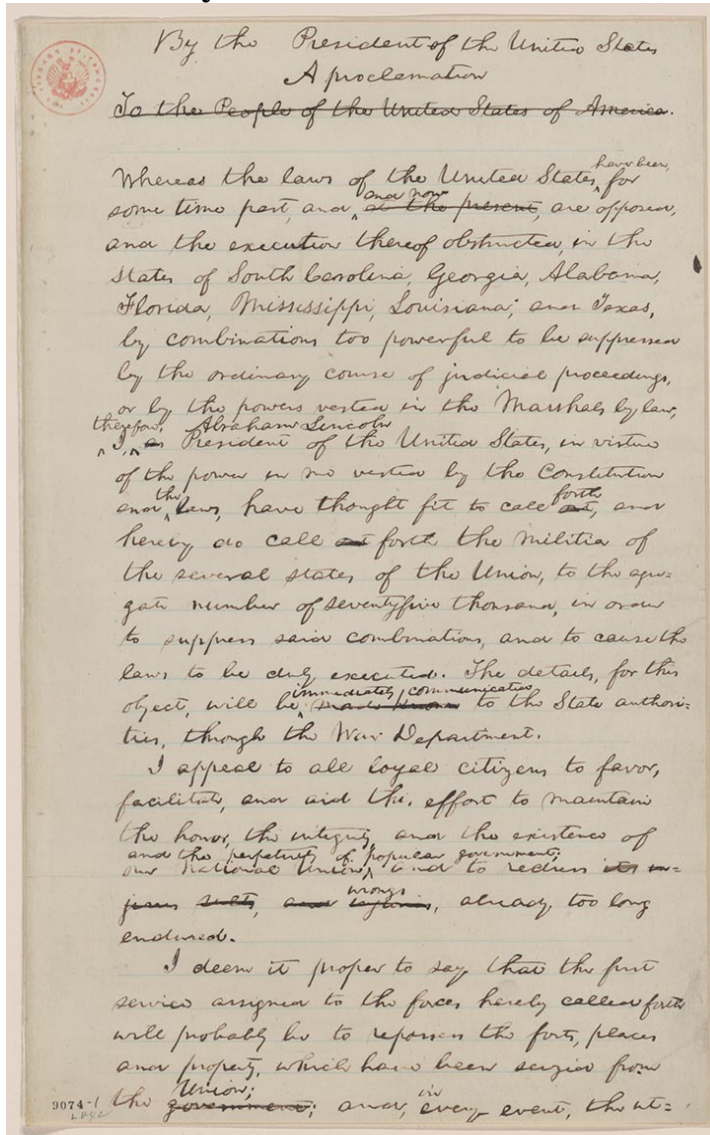 By the President of the United States
A proclamation
To the People of the United States of America.
Whereas the laws of the United States, have been, for
some time past, and and now at the present, are opposed,
and the execution thereof obstructed, in the
States of South Carolina, Georgia, Alabama,
Florida, Mississippi, Louisiana; and Texas,
by combinations too powerful to be suppressed
by the ordinary course of judicial proceedings,
or by the powers vested in the Marshals by law,
therefore, Abraham Lincoln
I, as President of the United States, in virtue
of the power in me vested by the Constitution
and the laws, have thought fit to call forth out, and
hereby do call out forth the militia of
the several states of the Union, to the aggre=
gate number of seventyfive thousand, in order
to suppress said combinations, and to cause the
laws to be duly executed. The details, for this
object, will be immediately communicated made known to the State authori=
ties, through the War Department.
I appeal to all loyal citizens to favor,
facilitate, and aid this, effort to maintain
the honor, the integrity, and the existence of
and the perpetuity of popular government;
our national Union, and to redress its in=
wrongs
, already too long
endured.
I deem it proper to say that the first
service assigned to the forces hereby called forth
will probably be to repossess the forts, places
and property, which have been seized from
the Union; government; and, in every event, the ut=
9074-1